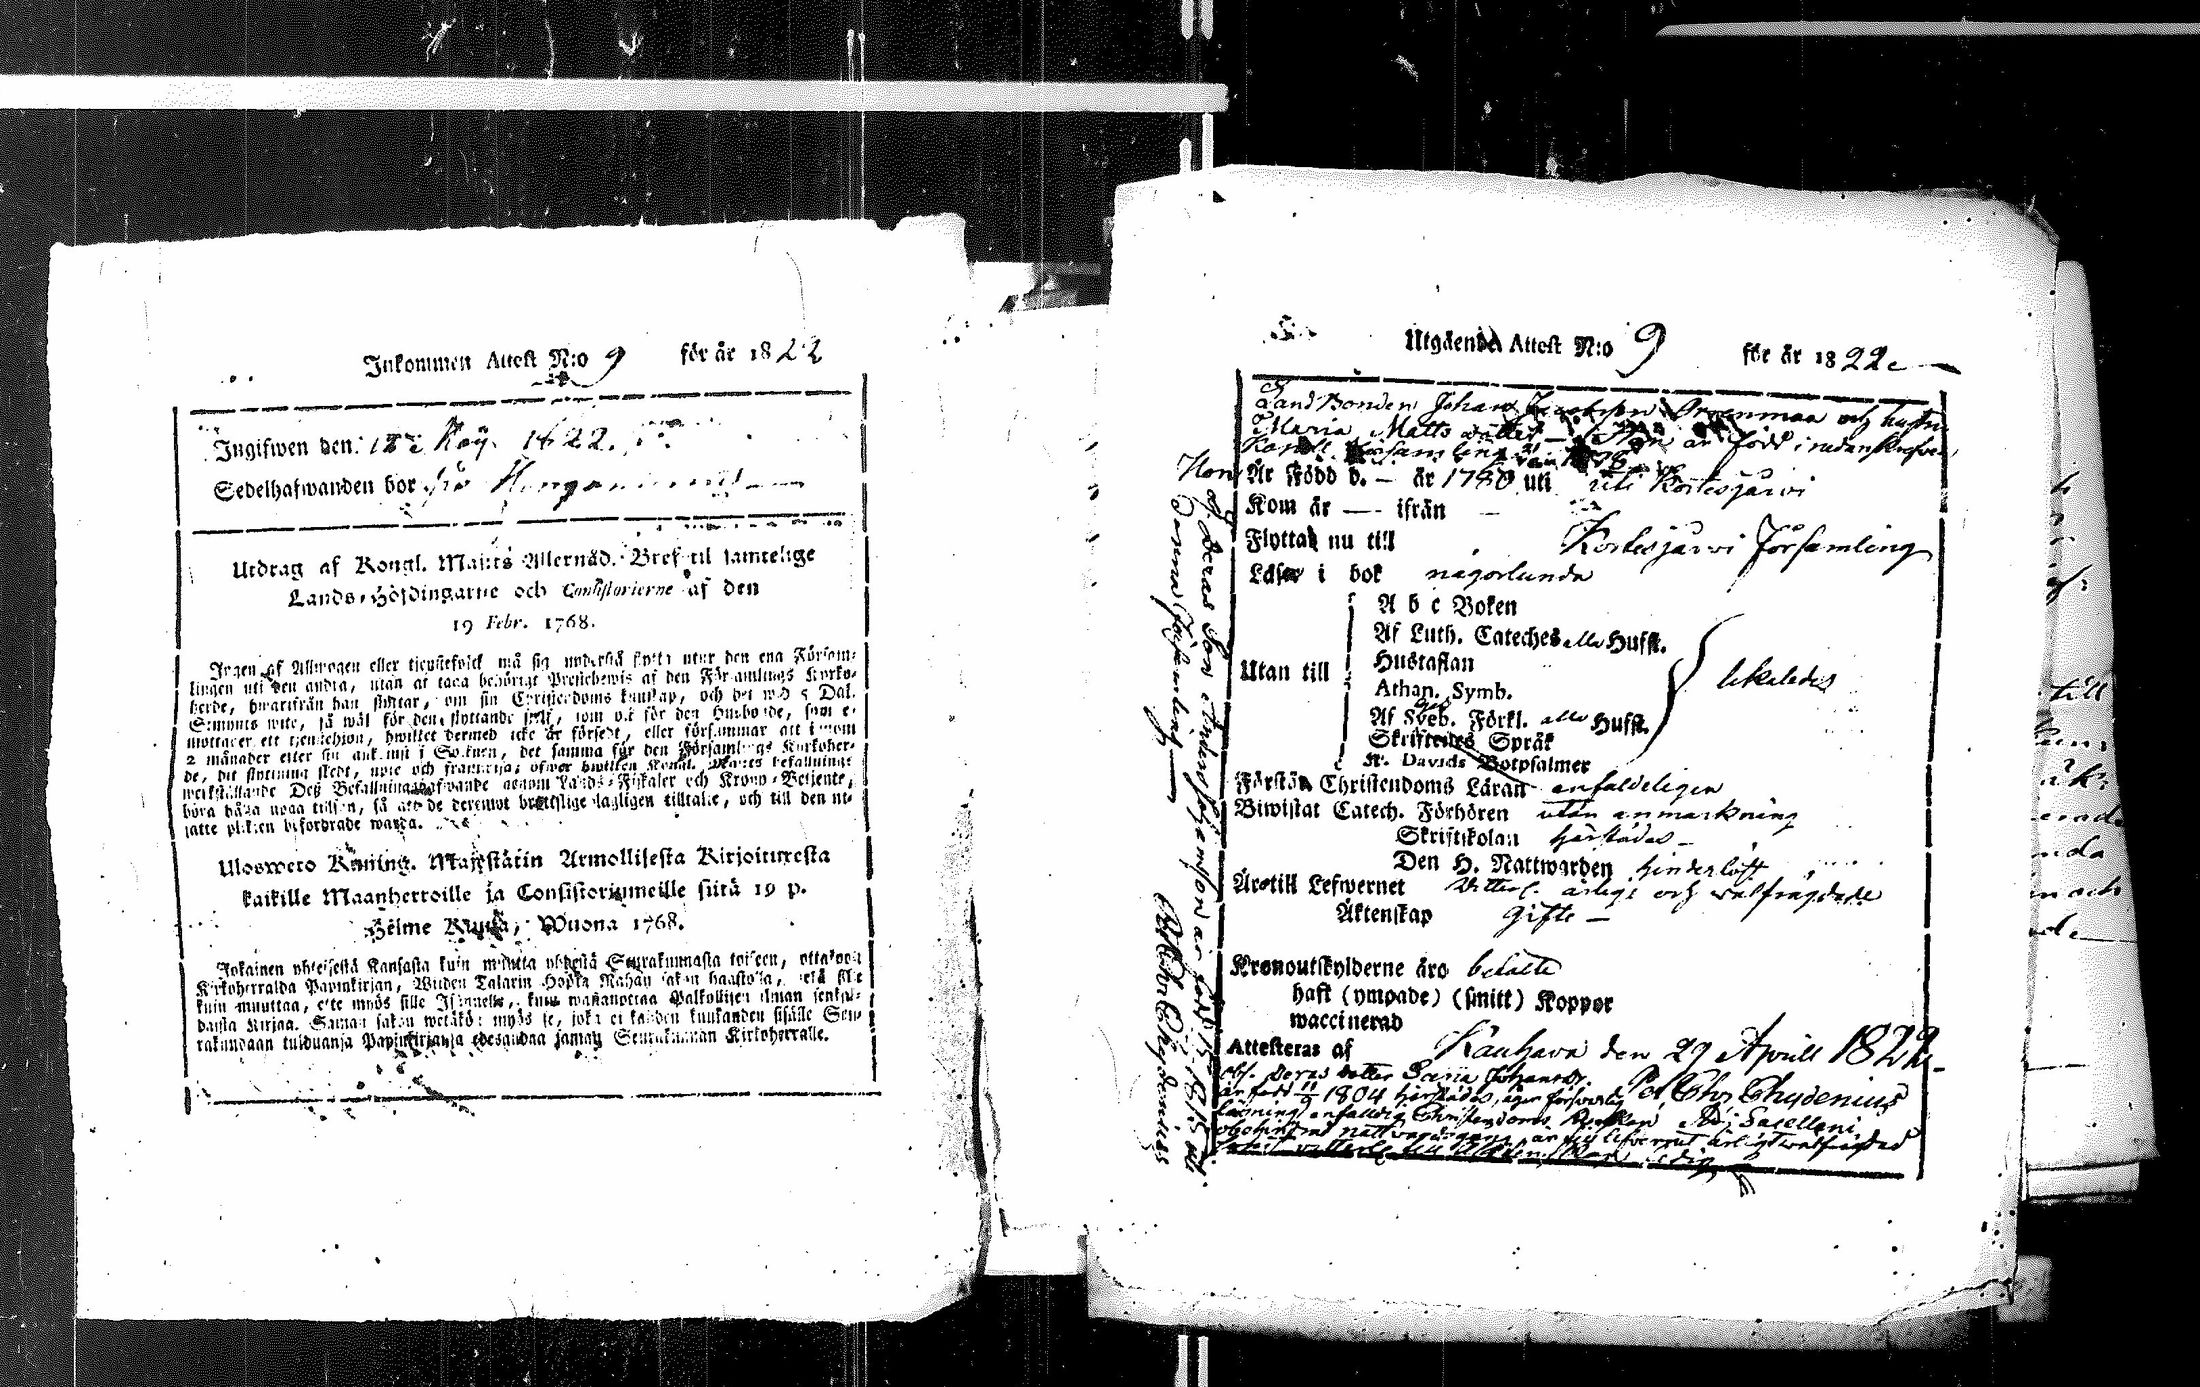 Inkommen Attest N:o 9 för år 1822
Ingifwen den 12 Maij 1822.
Sedelhafwanden bor
Utdrag af Kongl. Maj:ts Allernåd. Bref til samtelige
Lands-Höfdingarne och Consistorierne af den
19 Febr. 1768.
Ingen af Allmogen eller tienstefolck må sig understå flytta utur den ena Försam-
lingen uti den andra, utan at taga behörigt Prestebewis af den Församlings Kyrko-
herde, hwarifrån han flyttar, om sin Christendoms kunskap, och det wid 5 Dal.
S:mynts wite, så wäl för den flyttande sielf, som ock för den Husbonde, som e-
mottager ett tjenstehjon, hwilket dermed icke är försedt, eller försummar att inom
2 månader efter sin ankomst i Socknen, det samma för den Församlings Kyrkoher-
de, dit flyttning skedt, upte och framwisa; öfwer hwilken Konal. Maj:ts befallnings
werkställande Deß Befallningshafwande genom Lands-Fiskaler och Krono-Betjente,
böra hålla noga tillsyn, så att de deremot brottslige lagligen tilltalte, och till den ut-
satte plikten befordrade warda.
Ulosweto Kuning. Majestätin Armollisesta Kirjoituresta
kaikille Maanherroille ja Consistoriumeille siitä 19 p.
Helme Kuuta, Wuona 1768.
Jokainen yhteisestä Kansasta kuin muutta yhdestä Seurakunnasta toiseen, ottakoon
Kirkoherralda Papinkirjan, Wiiden Talarin Hopia Rahan sakon haastolla, sekä sille
kuin muuttaa, ette myös sille Isännelle, kuin wastanottaa Palkollisen ilman senkal-
daista Kirjaa. Saman sakon wetäkön myös se, joka ei kahden kuukauden sisälle Seu-
rakundaan tulduansa Papinkirjansa edesandaa saman Seurakunnan Kirkoherralle.
Utgående Attest N:o 9 för år 1822
Landbonden Johan Jacobson Orrenmaa och hustru
Maria Matts dotter – Han är född i nedanskrefven
Hon Är Född d. – år 1780 uti Kortesjärwi
Kom år — ifrån –
Flytta nu till Kortesjärwi Församling
Läser i bok någorlunda
A b c Boken
Af Luth. Cateches alla Hufst.
Hustaflan
Utan till
Athan. Symb. likaledes
Af Sveb. Förkl. alla Hufst.
Skriftenes Språk
K. Davids Botpsalmer
Förstå Christendoms Läran enfaldeligen
Biwistat Catech. Förhören utan anmärkning
Skriftskolan härstädes –
Den H. Nattwarden hinderlöst
Äro till Lefwernet ärlige och wälfrägdade
Äktenskap Gifte –
Kronoutskylderne äro betalte
haft (ympade) (smitt) Koppor
waccinerad
Attesteras af Kauhava den 29 Aprill 1822.
Obs. Deras dotter Caisa Johansdr. Pet. Chr. Chydenius
är född 11/9 1804 härstädes, äger försvarlig Adj. Sacellani
läsning, enfaldig Christendoms
är till lefvernet ärligt wälfrägdad
ledig
Och deras Son Anders följer
Denna Församling —
P Chr Chydenius